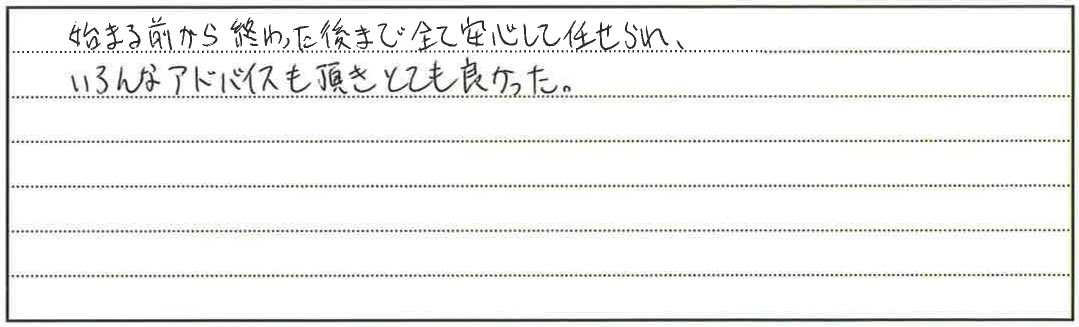 始まる前から終わった後まで全て安心して任せられ、
いろんなアドバイスも頂きとても良かった。